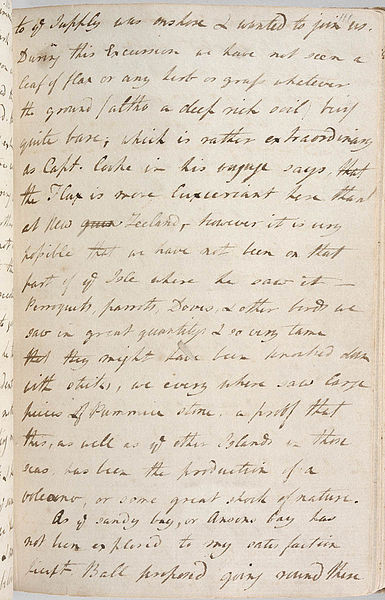 to ye Supply was onshore & wanted to join us.
During this Excursion we have not seen a
leaf of flax or any herb or grass whatever
the ground (altho a deep rich soil) being
quite bare, which is rather extraordinary
as Capt. Cooke in his voyage says, that
the Flax is more Luxceriant here than
at New Zeeland, however it is very
possible that we have not been on that
part of ye Isle where he saw it —
Perroquets, parrots, Doves, & other birds we
saw in great quantitys & so very tame
that they might have been knocked down
with sticks, we every where saw large
pieces of Pummice stone, a proof that
this, as well as ye other Islands in those
seas, has been the production of a
volcano, or some great shock of nature.
As ye sandy bay, or Ansons bay has
not been explored to my satisfaction
Lieut. Ball proposed going round there